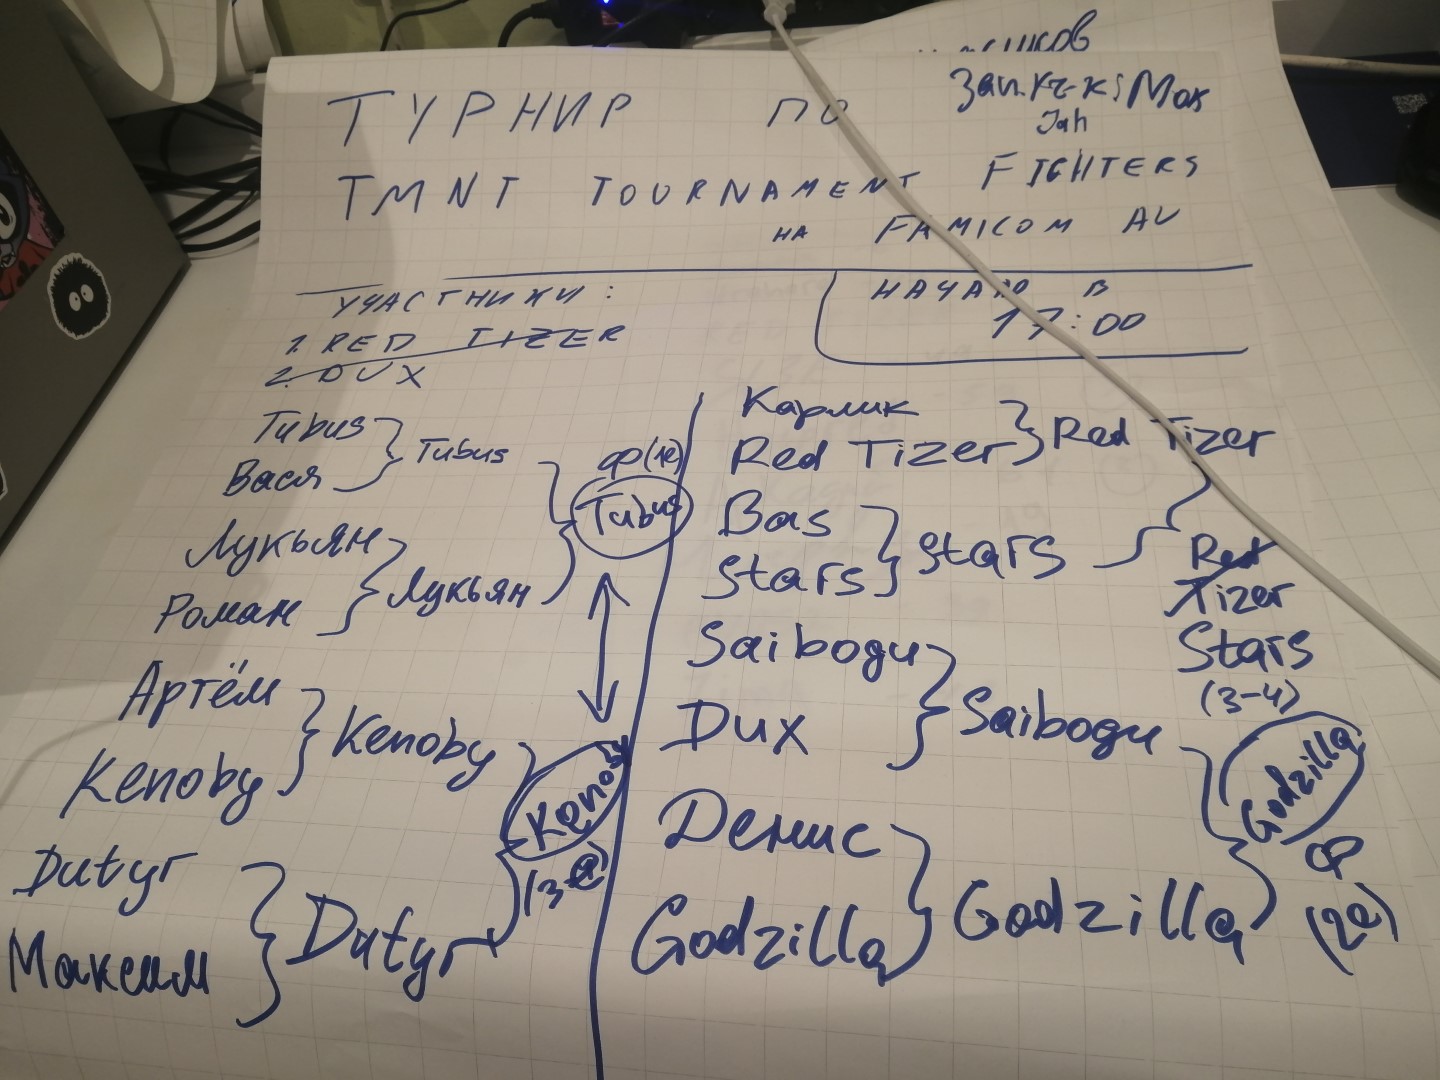 ТУРНИР ПО
TMNT TOURNAMENT FIGHTERS
НА FAMICOM AV
УЧАСТНИКИ:
1. RED TIZER
2. DUX
НАЧАЛО В
17:00
Tubus
Вася
Tubus
Лукьян
Роман
Лукьян
ф(1е)
Tubus
Артём
Kenoby
Kenoby
Dutyr
Максим
Dutyr
Kenoby
Карлик
Red Tizer
Red Tizer
Bas
Stars
Stars
Red
Tizer
Stars
(3-4)
Saibogu
Dux
Saibogu
Денис
Godzilla
Godzilla
Godzilla
Ф